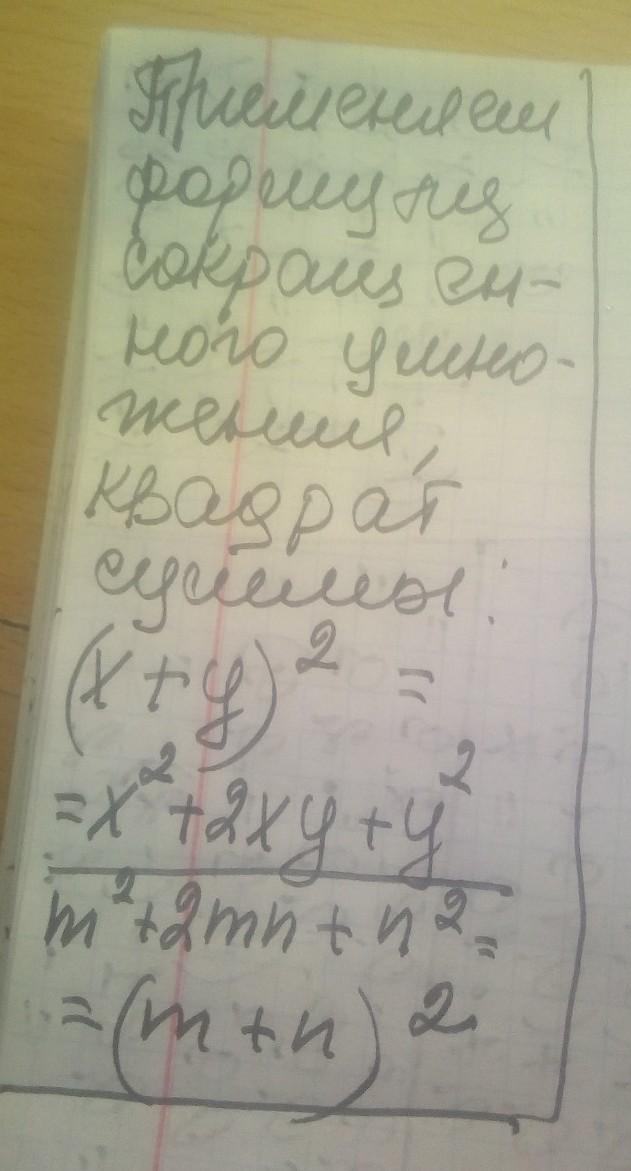 Применяем
формулу
сокращен-
ного умно-
жения,
квадрат
суммы:
(x+y)² =
=x²+2xy+y²
m²+2mn+n²=
=(m+n)²